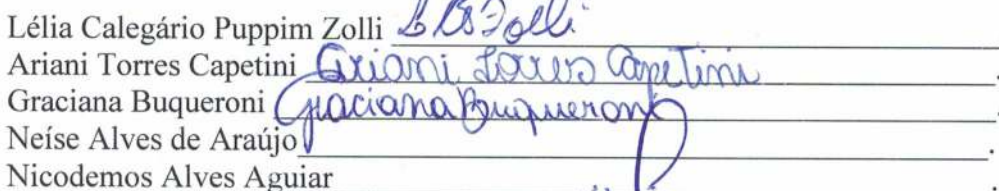 Lélia Calegário Puppim Zolli Zolli
Ariani Torres Capetini Ariani Torres Capetini
Graciana Buqueroni Graciana Buqueroni.
Neíse Alves de Araújo .
Nicodemos Alves Aguiar .